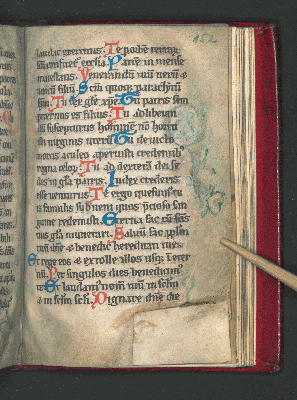 152
laudat exercitus. Te per orbe terraꝝ
sancta confitet ecclia. Patrem in mense
maiestatis. Venerandum tuum verum et
unicum filium. Sanctum quoq; paraclytum
spm. Tu rex glie xpe. Tu patris sem
piternus es filius. Tu ad liberan
dum suscepturus hominem non horru
isti virginis uterum. Tu devicto
mortis aculeo aperuisti credentib;
regna celoꝝ. Tu ad dexteram dei se
des in glia patris. Iudex crederis
esse venturus. Te ergo quesumus tu
is famulis subveni quos precioso san
guine redemisti. Eterna fac cum scis
tuis glia munerari. Salvum fac pplm
tuum dne et benedic hereditati tue.
Et rege eos et extolle illos usq; in eter
num. Per singulos dies benedicimus
te. Et laudamus nomen tuum in sclm
et in sclm scli. Dignare dne die